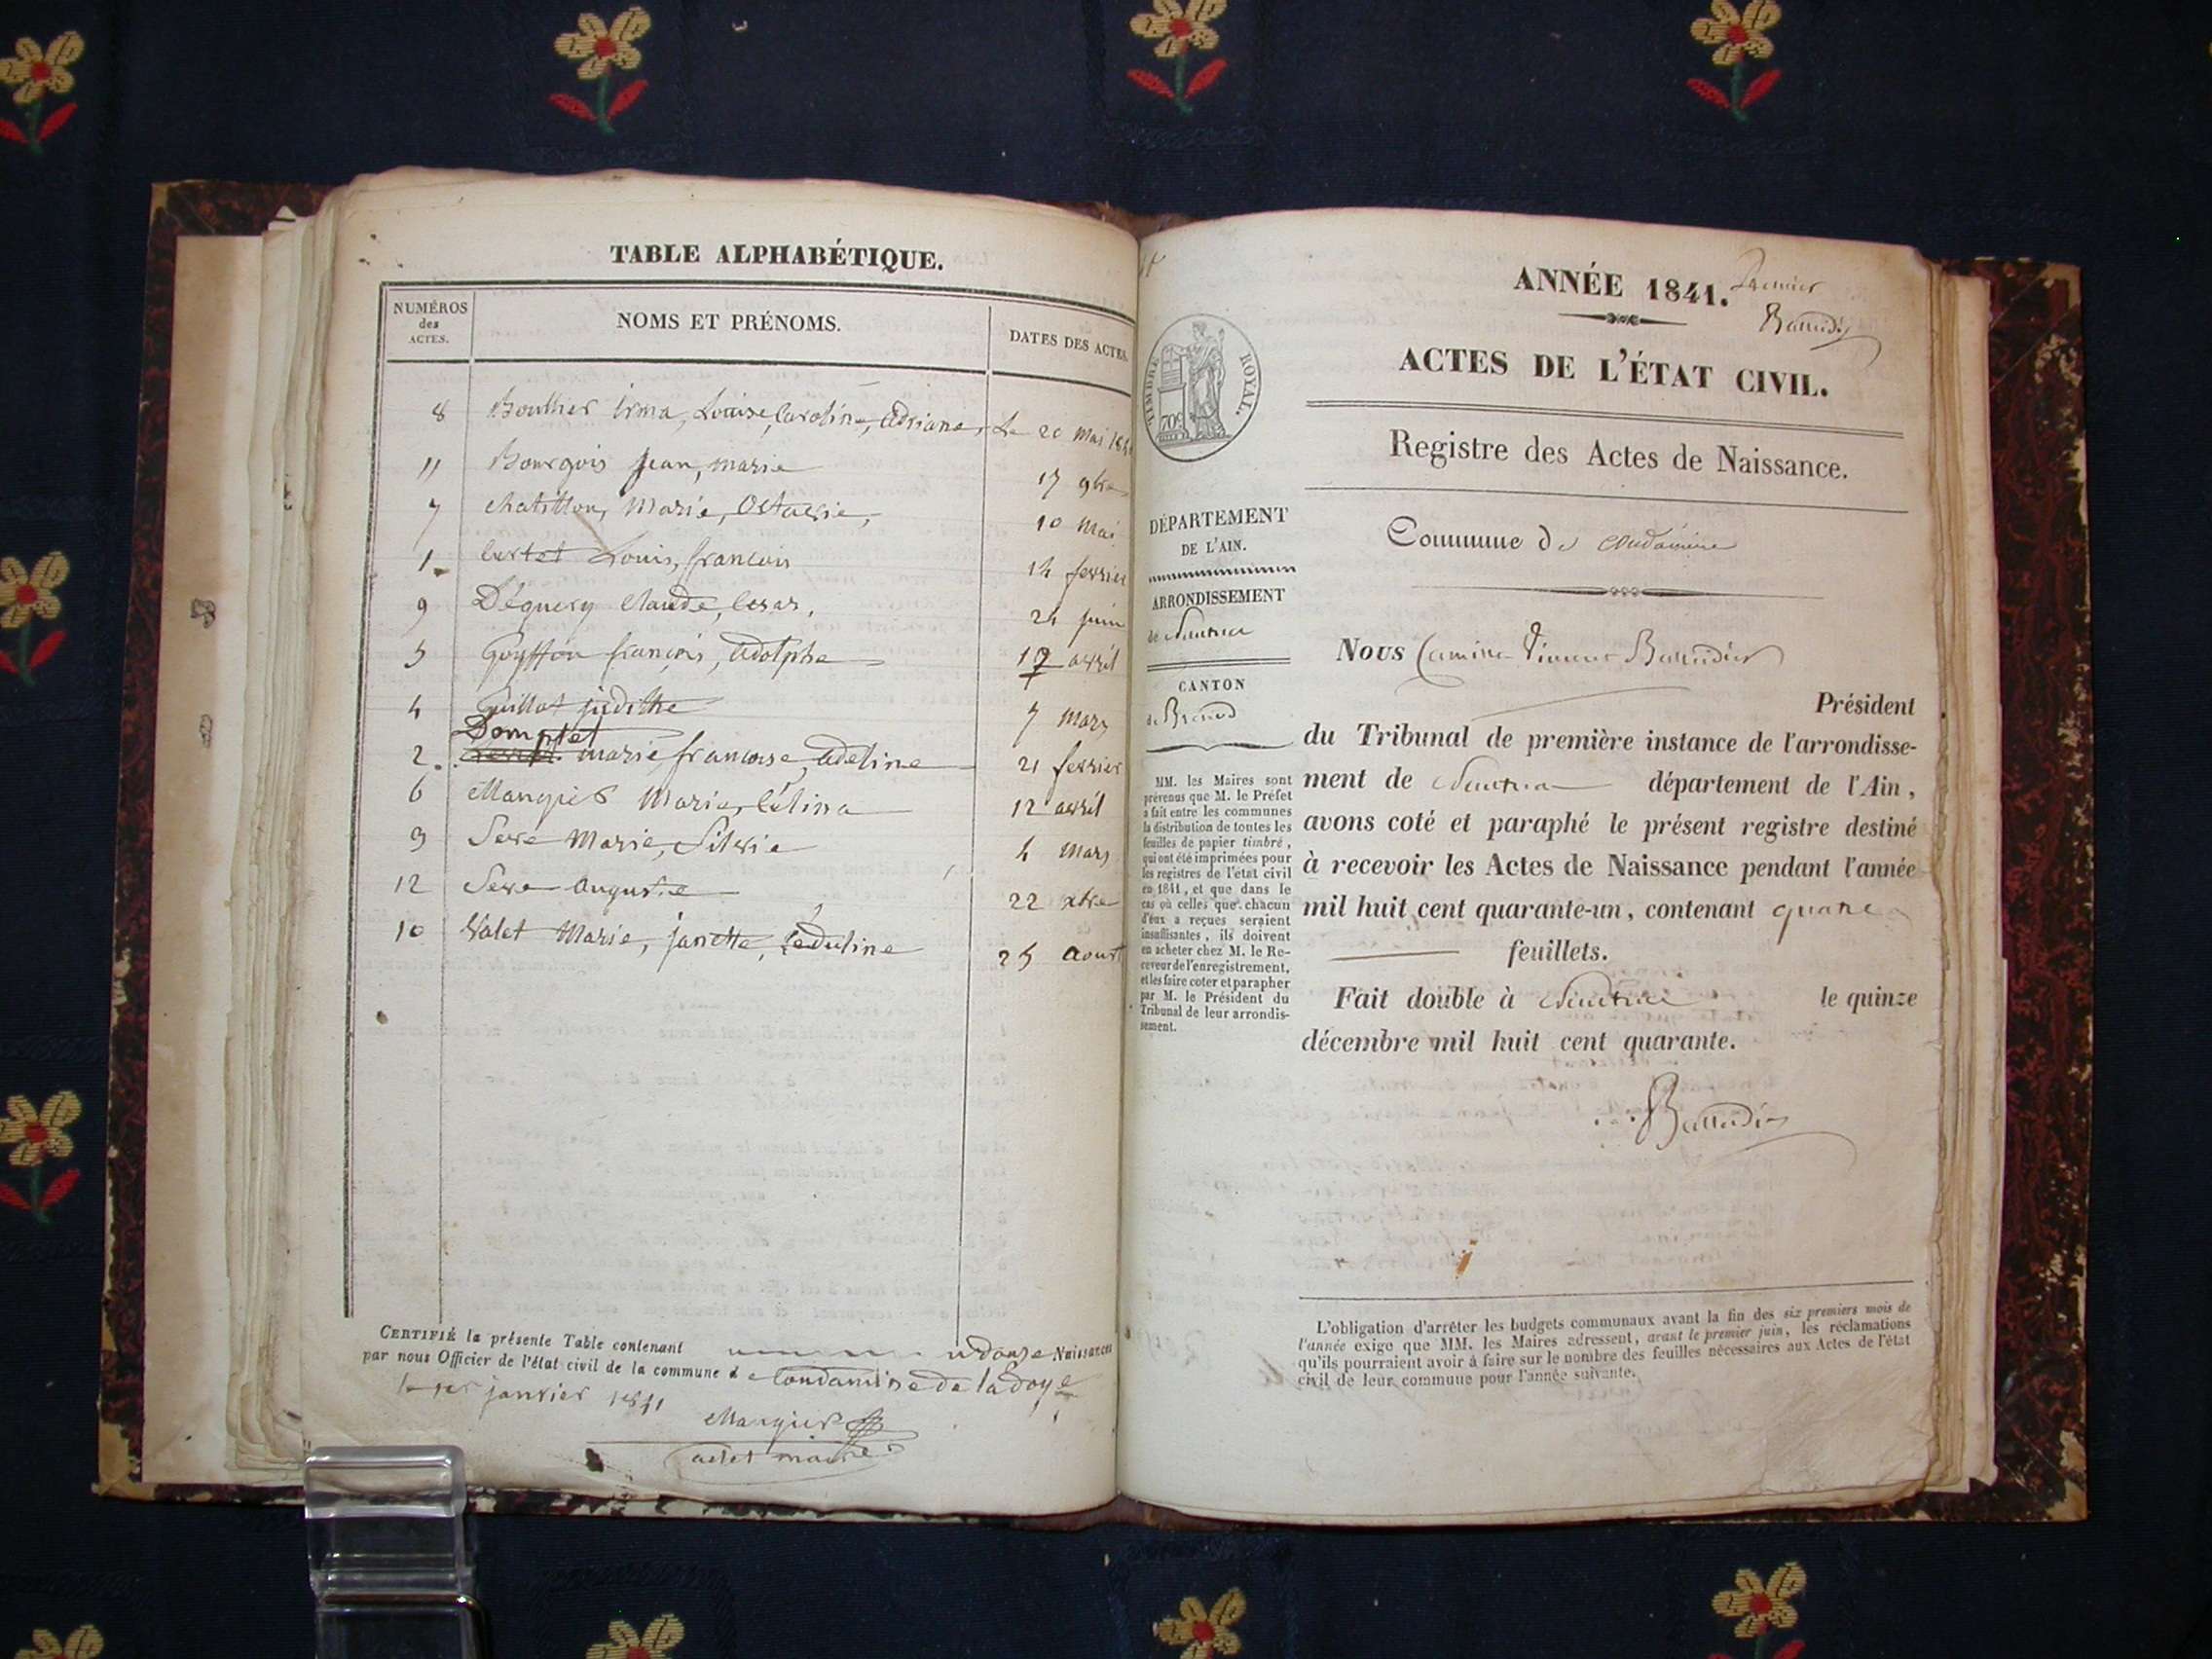 TABLE ALPHABÉTIQUE.
NUMÉROS
des
ACTES.
NOMS ET PRÉNOMS.
DATES DES ACTES.
8 Bouthier irma, Louise, Caroline, Adriana, Le 20 Mai
11 Bourgois Jean, marie 17 9bre
7 chatillon, Marie, Octavie, 10 Mai
1 Louis, françois 14 fevrier
9 Déguery Claude, Cesar, 24 juin
5 Goyffon françois, Adolphe 17 avril
4 Guillot judithe 7 Mars
Domptet
2 marie françoise, Adeline 21 fevrier
6 Mangier Marie, Célina 12 avril
3 Seve Marie, Silvie 4 Mars
12 Seve Auguste 22 xbre
10 Valet Marie, janette, 25 Aoust
CERTIFIÉ la présente Table contenant douze Naissances
par nous Officier de l'état civil de la commune de Condamine de la doye
le 1er janvier 1841
Mangier
adjt maire
ANNÉE 1841.
Premier
ACTES DE L'ÉTAT CIVIL.
Registre des Actes de Naissance.
Commune de Condamine
TIMBRE ROYAL.
70c
DÉPARTEMENT
DE L'AIN.
ARRONDISSEMENT
de Nantua
CANTON
de Brenod
MM. les Maires sont
prévenus que M. le Préfet
a fait entre les communes
la distribution de toutes les
feuilles de papier timbré,
qui ont été imprimées pour
les registres de l'état civil
en 1841, et que dans le
cas où celles que chacun
d'eux a reçues seraient
insuffisantes, ils doivent
en acheter chez M. le Re-
ceveur de l'enregistrement,
et les faire coter et parapher
par M. le Président du
Tribunal de leur arrondis-
sement.
Nous Camille Vincent
Président
du Tribunal de première instance de l'arrondisse-
ment de Nantua département de l'Ain,
avons coté et paraphé le présent registre destiné
à recevoir les Actes de Naissance pendant l'année
mil huit cent quarante-un, contenant
feuillets.
Fait double à Nantua le quinze
décembre mil huit cent quarante.
L'obligation d'arrêter les budgets communaux avant la fin des six premiers mois de
l'année exige que MM. les Maires adressent, avant le premier juin, les réclamations
qu'ils pourraient avoir à faire sur le nombre des feuilles nécessaires aux Actes de l'état
civil de leur commune pour l'année suivante.